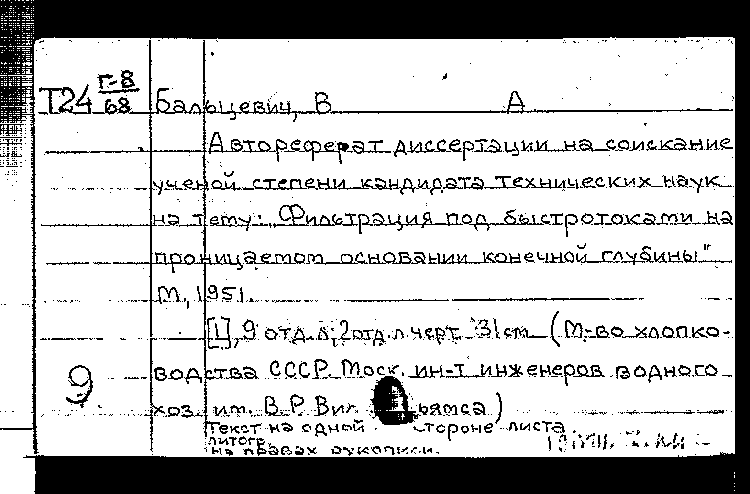 Т24 Г-8/68 Бальцевич, В А
Автореферат диссертации на соискание
ученой степени кандидата технических наук
на тему: „Фильтрация под быстротоками на
проницаемом основании конечной глубины"
М, 1951.
[1], 9 отд. л; 2 отд. л черт. 31 см (М-во хлопко-
9 водства СССР. Моск. ин-т инженеров водного
хоз им. В. Р. Вил ьямса)
Текст на одной стороне листа
литогр.
на правах рукописи.